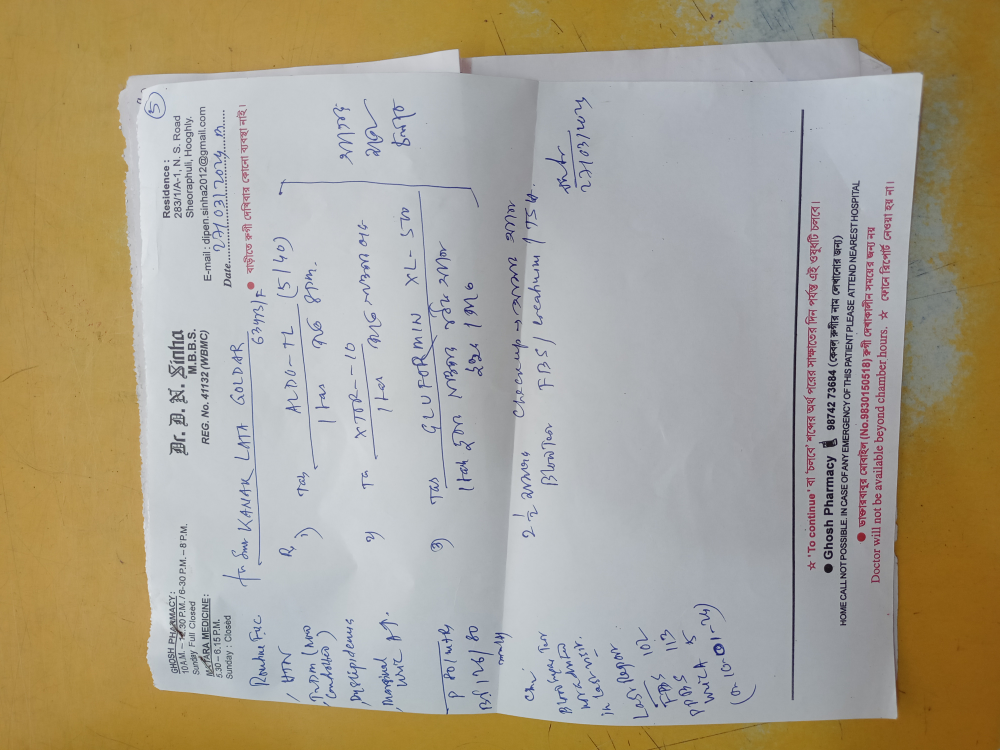 5
GHOSH PHARMACY :
10 A.M. – 12.30 P.M. / 6-30 P.M. – 8 P.M.
Sunday Full Closed
MATARA MEDICINE :
5.30 – 6.15 P.M.
Sunday : Closed
Dr. D. N. Sinha
M.B.B.S.
REG. No. 41132 (WBMC)
Residence :
283/1/A-1, N. S. Road
Sheoraphuli, Hooghly.
E-mail : dipen.sinha2012@gmail.com
Date 27/03/2024
● বাড়ীতে রুগী দেখিবার কোনো ব্যবস্থা নাই।
KANAK LATA GOLDAR
Routine F/UC
, HTN
T2DM (now controlled)
, Dyslipidemia
, Marginal uric A↑.
P 80/mts
BP 126/80
in last visit.
Last Repor
FBS 102
PPBS 113
Uric A 5
(on 10-01-24)
R,
1) Tab ALDO-TL (5/40)
1 tab 8pm.
2) Ta XTOR-10
1 tab
3) Tab GLUFORMIN XL-500
1 tab
checkup →
Blood Test FBS / creatinine / TSH.
27/03/2024
☆ 'To continue' বা 'চলবে' শব্দের অর্থ পরের সাক্ষাতের দিন পর্যন্ত এই ওষুধটি চলবে।
● Ghosh Pharmacy 98742 73684 (কেবল রুগীর নাম লেখানোর জন্য)
HOME CALL NOT POSSIBLE. IN CASE OF ANY EMERGENCY OF THIS PATIENT PLEASE ATTEND NEAREST HOSPITAL
● ডাক্তারবাবুর মোবাইল (No.9830150518) রুগী দেখাকালীন সময়ের জন্য নয়
Doctor will not be available beyond chamber hours. ☆ ফোনে রিপোর্ট নেওয়া হয় না।